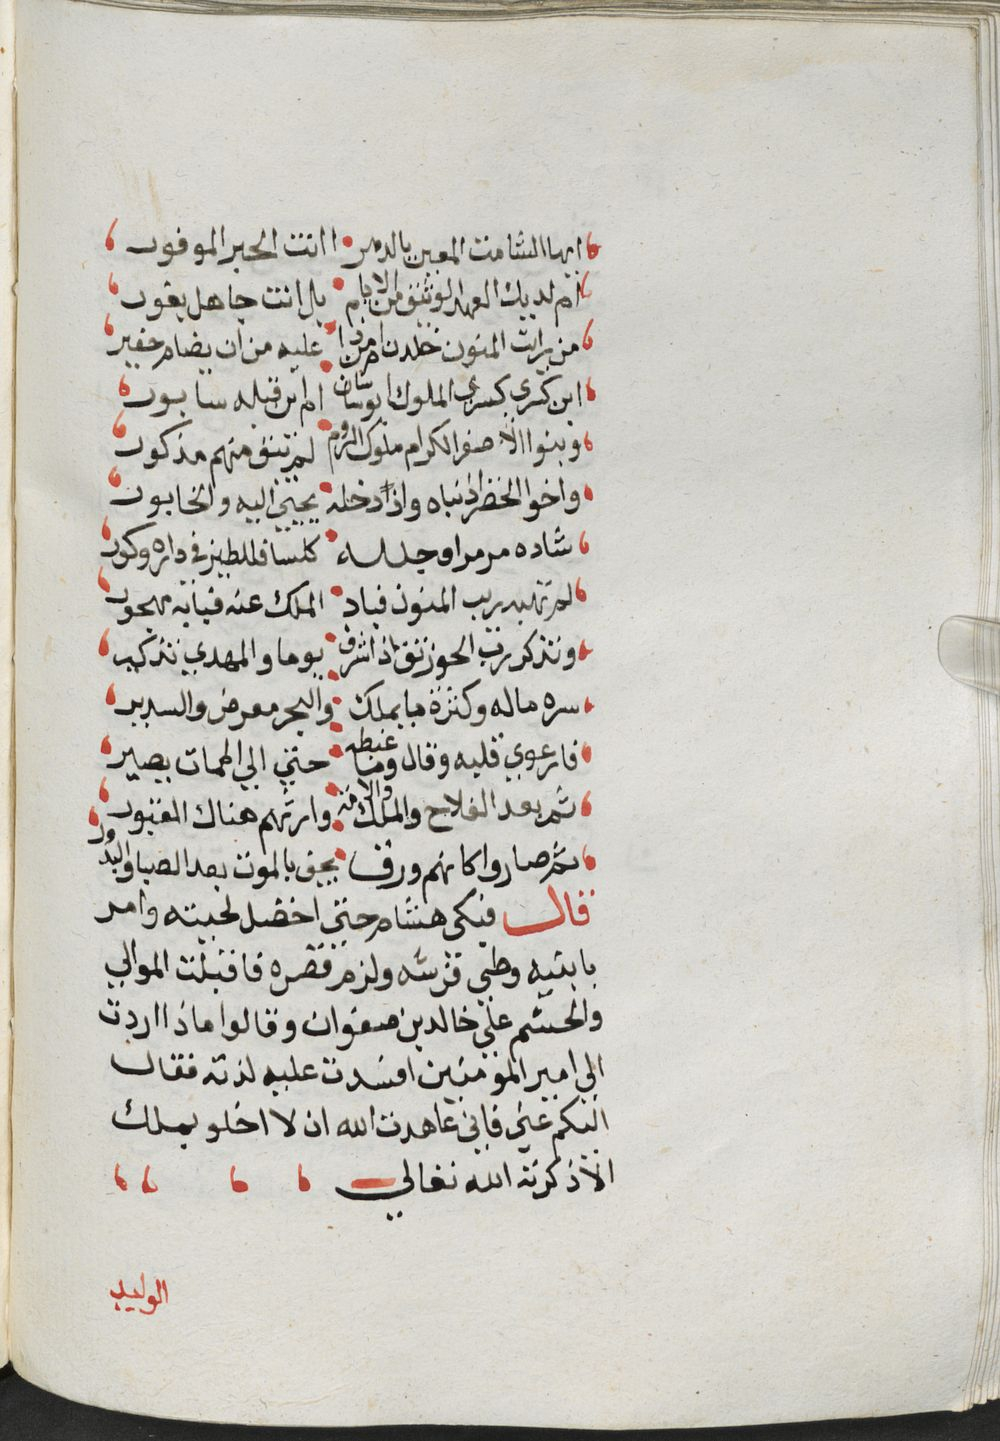 ايها الشامت المعير بالدهر اانت الحبر الموفور
ام لديك العهد الوثيق من الايام بل انت جاهل مغرور
من رايت المنون خلدن ام من ذا عليه من ان يضام خفير
اين كسرى كسرى الملوك انوسان ام اين قبله سابور
وبنوا الاصفر الكرام ملوك الروم لم يبق منهم مذكور
واخوا الخضر اذ نباه واذ دخله يجبى اليه والخابور
شاده مرمرا وجلله كلسا فللطير في داره وكور
لم تهبه ريب المنون فباد الملك عنه فبابه مهجور
وتذكر رب الحوزنق اذ اشرف يوما والمهدي تذكير
سره ماله وكثرة ما يملك والبحر معرض والسدير
فارعوي قلبه وقال وما غبطه حتي الي الممات يصير
ثم بعد الفلاح والملك والامة وارتهم هناك القبور
ثم صاروا كانهم ورق يجف بالموت بعد الصبا والبدور
قال فبكى هشام حتي اخضل لحيته وامر
بابنيه وطى فرشه ولزم قصره فاقبلت الموالي
والحشم علي خالد بن صفوان وقالوا ماذا اردت
الي امير المومنين افسدت عليه لذته فقال
اليكم عني فاني عاهدت الله ان لا اخلو بملك
الا ذكرته الله تعالي
الوليد